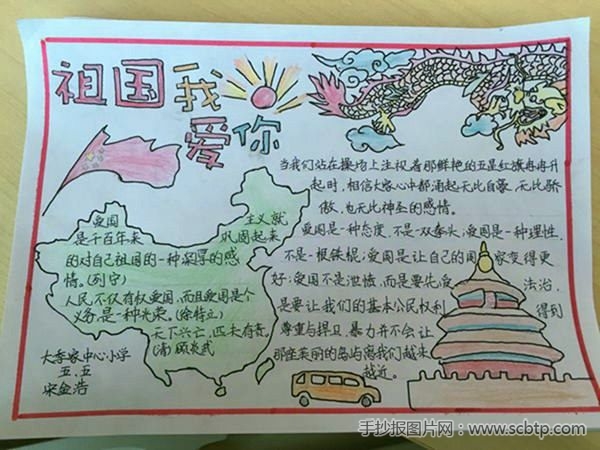 祖国我
爱你
当我们站在操场上注视着那鲜艳的五星红旗冉冉升
起时,相信大家心中都涌起无比自豪、无比骄
傲、也无比神圣的感情。
爱国是一种态度,不是双拳头,爱国是一种理性,
不是一根铁棍;爱国是让自己的国家变得更
好;爱国不是泄愤,而是要先爱法治,
是要让我们的基本公民权利得到
尊重与捍卫,暴力并不会让
那座美丽的岛屿离我们越来
越近。
爱国主义就
是千百年来巩固起来
的对自己祖国的一种深厚的感
情。(列宁)
人民,不仅有权爱国,而且爱国是个
义务,是一种光荣。(徐特立)
天下兴亡,匹夫有责,
(清)顾炎武
大李家中心小学
五.五
宋金浩
手抄报图片网:www.scbtp.com